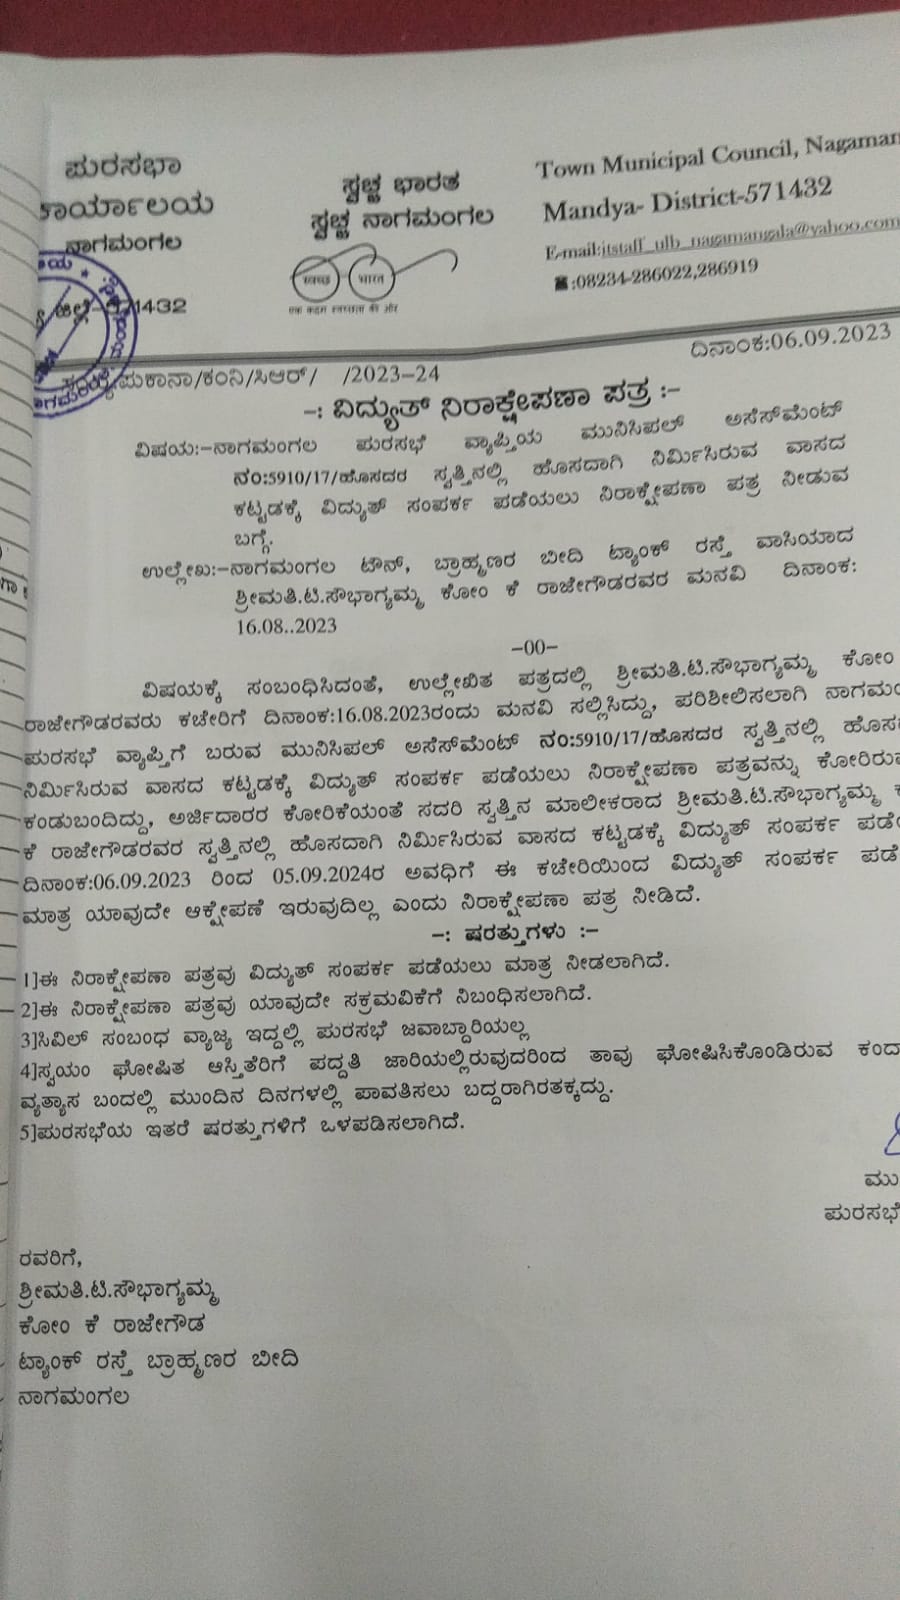 ಪುರಸಭಾ
ಕಾರ್ಯಾಲಯ
ನಾಗಮಂಗಲ
ಜಿಲ್ಲೆ-571432
ಸ್ವಚ್ಛ ಭಾರತ
ಸ್ವಚ್ಛ ನಾಗಮಂಗಲ
स्वच्छ भारत
एक कदम स्वच्छता की ओर
Town Municipal Council, Nagaman
Mandya- District-571432
E-mail:itstaff_ulb_nagamangala@yahoo.com
☎:08234-286022,286919
ದಿನಾಂಕ:06.09.2023
ಪುಕಾನಾ/ಕಂನಿ/ಸಿಆರ್/ /2023-24
-: ವಿದ್ಯುತ್ ನಿರಾಕ್ಷೇಪಣಾ ಪತ್ರ :-
ವಿಷಯ:-ನಾಗಮಂಗಲ ಪುರಸಭೆ ವ್ಯಾಪ್ತಿಯ ಮುನಿಸಿಪಲ್ ಅಸೆಸ್‌ಮೆಂಟ್
ನಂ:5910/17/ಹೊಸದರ ಸ್ವತ್ತಿನಲ್ಲಿ ಹೊಸದಾಗಿ ನಿರ್ಮಿಸಿರುವ ವಾಸದ
ಕಟ್ಟಡಕ್ಕೆ ವಿದ್ಯುತ್ ಸಂಪರ್ಕ ಪಡೆಯಲು ನಿರಾಕ್ಷೇಪಣಾ ಪತ್ರ ನೀಡುವ
ಬಗ್ಗೆ.
ಉಲ್ಲೇಖ:-ನಾಗಮಂಗಲ ಟೌನ್, ಬ್ರಾಹ್ಮಣರ ಬೀದಿ ಟ್ಯಾಂಕ್ ರಸ್ತೆ ವಾಸಿಯಾದ
ಶ್ರೀಮತಿ.ಟಿ.ಸೌಭಾಗ್ಯಮ್ಮ ಕೋಂ ಕೆ ರಾಜೇಗೌಡರವರ ಮನವಿ ದಿನಾಂಕ:
16.08..2023
-00-
ವಿಷಯಕ್ಕೆ ಸಂಬಂಧಿಸಿದಂತೆ, ಉಲ್ಲೇಖಿತ ಪತ್ರದಲ್ಲಿ ಶ್ರೀಮತಿ.ಟಿ.ಸೌಭಾಗ್ಯಮ್ಮ ಕೋಂ
ರಾಜೇಗೌಡರವರು ಕಚೇರಿಗೆ ದಿನಾಂಕ:16.08.2023ರಂದು ಮನವಿ ಸಲ್ಲಿಸಿದ್ದು, ಪರಿಶೀಲಿಸಲಾಗಿ ನಾಗಮಂ
ಪುರಸಭೆ ವ್ಯಾಪ್ತಿಗೆ ಬರುವ ಮುನಿಸಿಪಲ್ ಅಸೆಸ್‌ಮೆಂಟ್ ನಂ:5910/17/ಹೊಸದರ ಸ್ವತ್ತಿನಲ್ಲಿ ಹೊಸ
ನಿರ್ಮಿಸಿರುವ ವಾಸದ ಕಟ್ಟಡಕ್ಕೆ ವಿದ್ಯುತ್ ಸಂಪರ್ಕ ಪಡೆಯಲು ನಿರಾಕ್ಷೇಪಣಾ ಪತ್ರವನ್ನು ಕೋರಿರುವ
ಕಂಡುಬಂದಿದ್ದು, ಅರ್ಜಿದಾರರ ಕೋರಿಕೆಯಂತೆ ಸದರಿ ಸ್ವತ್ತಿನ ಮಾಲೀಕರಾದ ಶ್ರೀಮತಿ.ಟಿ.ಸೌಭಾಗ್ಯಮ್ಮ
ಕೆ ರಾಜೇಗೌಡರವರ ಸ್ವತ್ತಿನಲ್ಲಿ ಹೊಸದಾಗಿ ನಿರ್ಮಿಸಿರುವ ವಾಸದ ಕಟ್ಟಡಕ್ಕೆ ವಿದ್ಯುತ್ ಸಂಪರ್ಕ ಪಡೆ
ದಿನಾಂಕ:06.09.2023 ರಿಂದ 05.09.2024ರ ಅವಧಿಗೆ ಈ ಕಚೇರಿಯಿಂದ ವಿದ್ಯುತ್ ಸಂಪರ್ಕ ಪಡೆ
ಮಾತ್ರ ಯಾವುದೇ ಆಕ್ಷೇಪಣೆ ಇರುವುದಿಲ್ಲ ಎಂದು ನಿರಾಕ್ಷೇಪಣಾ ಪತ್ರ ನೀಡಿದೆ.
-: ಷರತ್ತುಗಳು :-
1]ಈ ನಿರಾಕ್ಷೇಪಣಾ ಪತ್ರವು ವಿದ್ಯುತ್ ಸಂಪರ್ಕ ಪಡೆಯಲು ಮಾತ್ರ ನೀಡಲಾಗಿದೆ.
2]ಈ ನಿರಾಕ್ಷೇಪಣಾ ಪತ್ರವು ಯಾವುದೇ ಸಕ್ರಮವಿಕೆಗೆ ನಿಬಂಧಿಸಲಾಗಿದೆ.
3]ಸಿವಿಲ್ ಸಂಬಂಧ ವ್ಯಾಜ್ಯ ಇದ್ದಲ್ಲಿ ಪುರಸಭೆ ಜವಾಬ್ದಾರಿಯಲ್ಲ
4]ಸ್ವಯಂ ಘೋಷಿತ ಆಸ್ತಿತೆರಿಗೆ ಪದ್ದತಿ ಜಾರಿಯಲ್ಲಿರುವುದರಿಂದ ತಾವು ಘೋಷಿಸಿಕೊಂಡಿರುವ ಕಂದಾ
ವ್ಯತ್ಯಾಸ ಬಂದಲ್ಲಿ ಮುಂದಿನ ದಿನಗಳಲ್ಲಿ ಪಾವತಿಸಲು ಬದ್ದರಾಗಿರತಕ್ಕದ್ದು.
5]ಪುರಸಭೆಯ ಇತರೆ ಷರತ್ತುಗಳಿಗೆ ಒಳಪಡಿಸಲಾಗಿದೆ.
ಮು
ಪುರಸಭೆ
ರವರಿಗೆ,
ಶ್ರೀಮತಿ.ಟಿ.ಸೌಭಾಗ್ಯಮ್ಮ
ಕೋಂ ಕೆ ರಾಜೇಗೌಡ
ಟ್ಯಾಂಕ್ ರಸ್ತೆ ಬ್ರಾಹ್ಮಣರ ಬೀದಿ
ನಾಗಮಂಗಲ